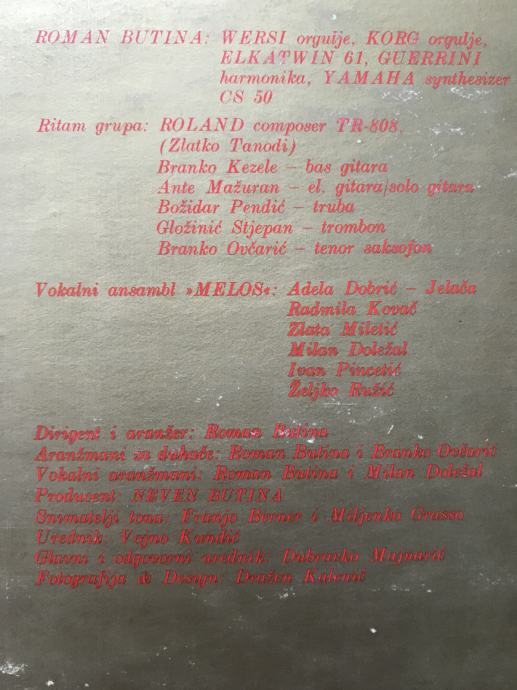 ROMAN BUTINA: WERSI orgulje, KORG orgulje,
ELKATWIN 61, GUERRINI
harmonika, YAMAHA synthesizer
CS 50
Ritam grupa: ROLAND composer TR-808,
(Zlatko Tanodi)
Branko Kezele – bas gitara
Ante Mažuran – el. gitara/solo gitara
Božidar Pendić – truba
Gložinić Stjepan – trombon
Branko Ovčarić – tenor saksofon
Vokalni ansambl »MELOS«: Adela Dobrić – Jelača
Radmila Kovač
Zlata Miletić
Milan Doležal
Ivan Pincetić
Željko Ružić
Dirigent i aranžer: Roman Butina
Aranžmani za duhače: Roman Butina i Branko Ovčarić
Vokalni aranžmani: Roman Butina i Milan Doležal
Producent: NEVEN BUTINA
Snimatelji tona: Franjo Berner i Miljenko Grassa
Urednik: Vojno Kundić
Glavni i odgovorni urednik: Dubravko Majnarić
Fotografija & Design: Dražen Kalenić